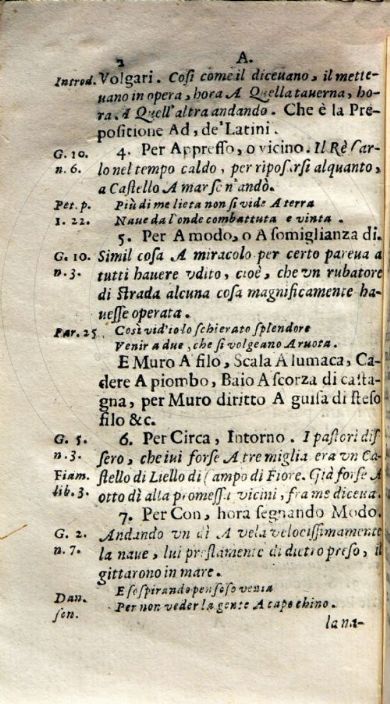 2 A.
Introd. Volgari. Cosi come il diceuano, il mette-
uano in opera, hora A Quella tauerna, ho-
ra A Quell'altra andando. Che è la Pre-
positione Ad, de' Latini.
G. 10. 4. Per Appresso, o vicino. Il Rè Car-
n. 6. lo nel tempo caldo, per riposarsi alquanto,
a Castello A mar se n'andò.
Pet. p. Più di me lieta non si vide A terra
1. 22. Naue da l'onde combattuta e vinta.
5. Per A modo, o A somiglianza di.
G. 10. Simil cosa A miracolo per certo pareua a
n. 3. tutti hauere vdito, cioè, che vn rubatore
di strada alcuna cosa magnificamente ha-
uesse operata.
Par. 25. Cosi vid'io lo schierato splendore
Venir a due, che si volgeano A ruota.
E Muro A filo, Scala A lumaca, Ca-
dere A piombo, Baio A scorza di casta-
gna, per Muro diritto A guisa di steso
filo &c.
G. 5. 6. Per Circa, Intorno. I pastori dis-
n. 3. sero, che iui forse A tre miglia era vn Ca-
Fiam. stello di Liello di Campo di Fiore. Già forse A
lib. 3. otto dì alla promessa vicini, fra me diceua.
7. Per Con, hora segnando Modo.
G. 2. Andando vn dì A vela velocissimamente
n. 7. la naue, lui prestamente di dietro preso, il
gittarono in mare.
Dan. E sospirando pensoso venia
son. Per non veder la gente A capo chino.
la na-